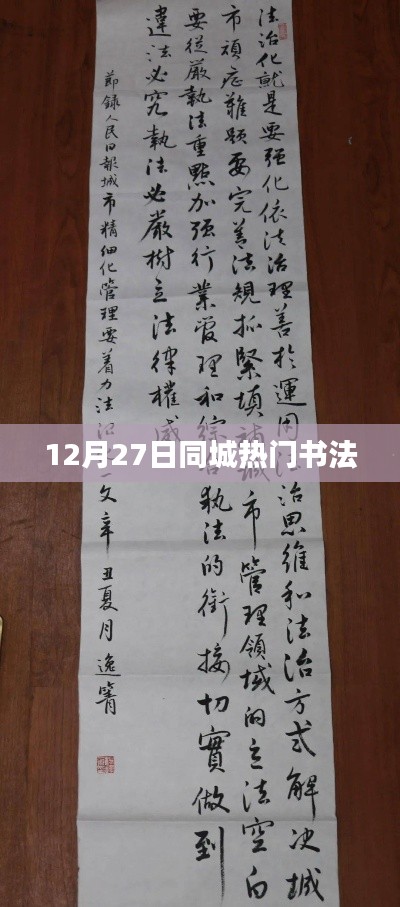 法治化就是要强化依法治理善於運用法治思維和法治方式解决城
市頑症難題要完善法規抓緊填補城市管理領域的立法空白
要從嚴執法重點加强行業管理和綜合執法的銜接切實做到
違法必究執法必嚴樹立法律權威
節録人民日報城市精细化管理要着力法治一文辛丑夏月逸
12月27日同城热门书法